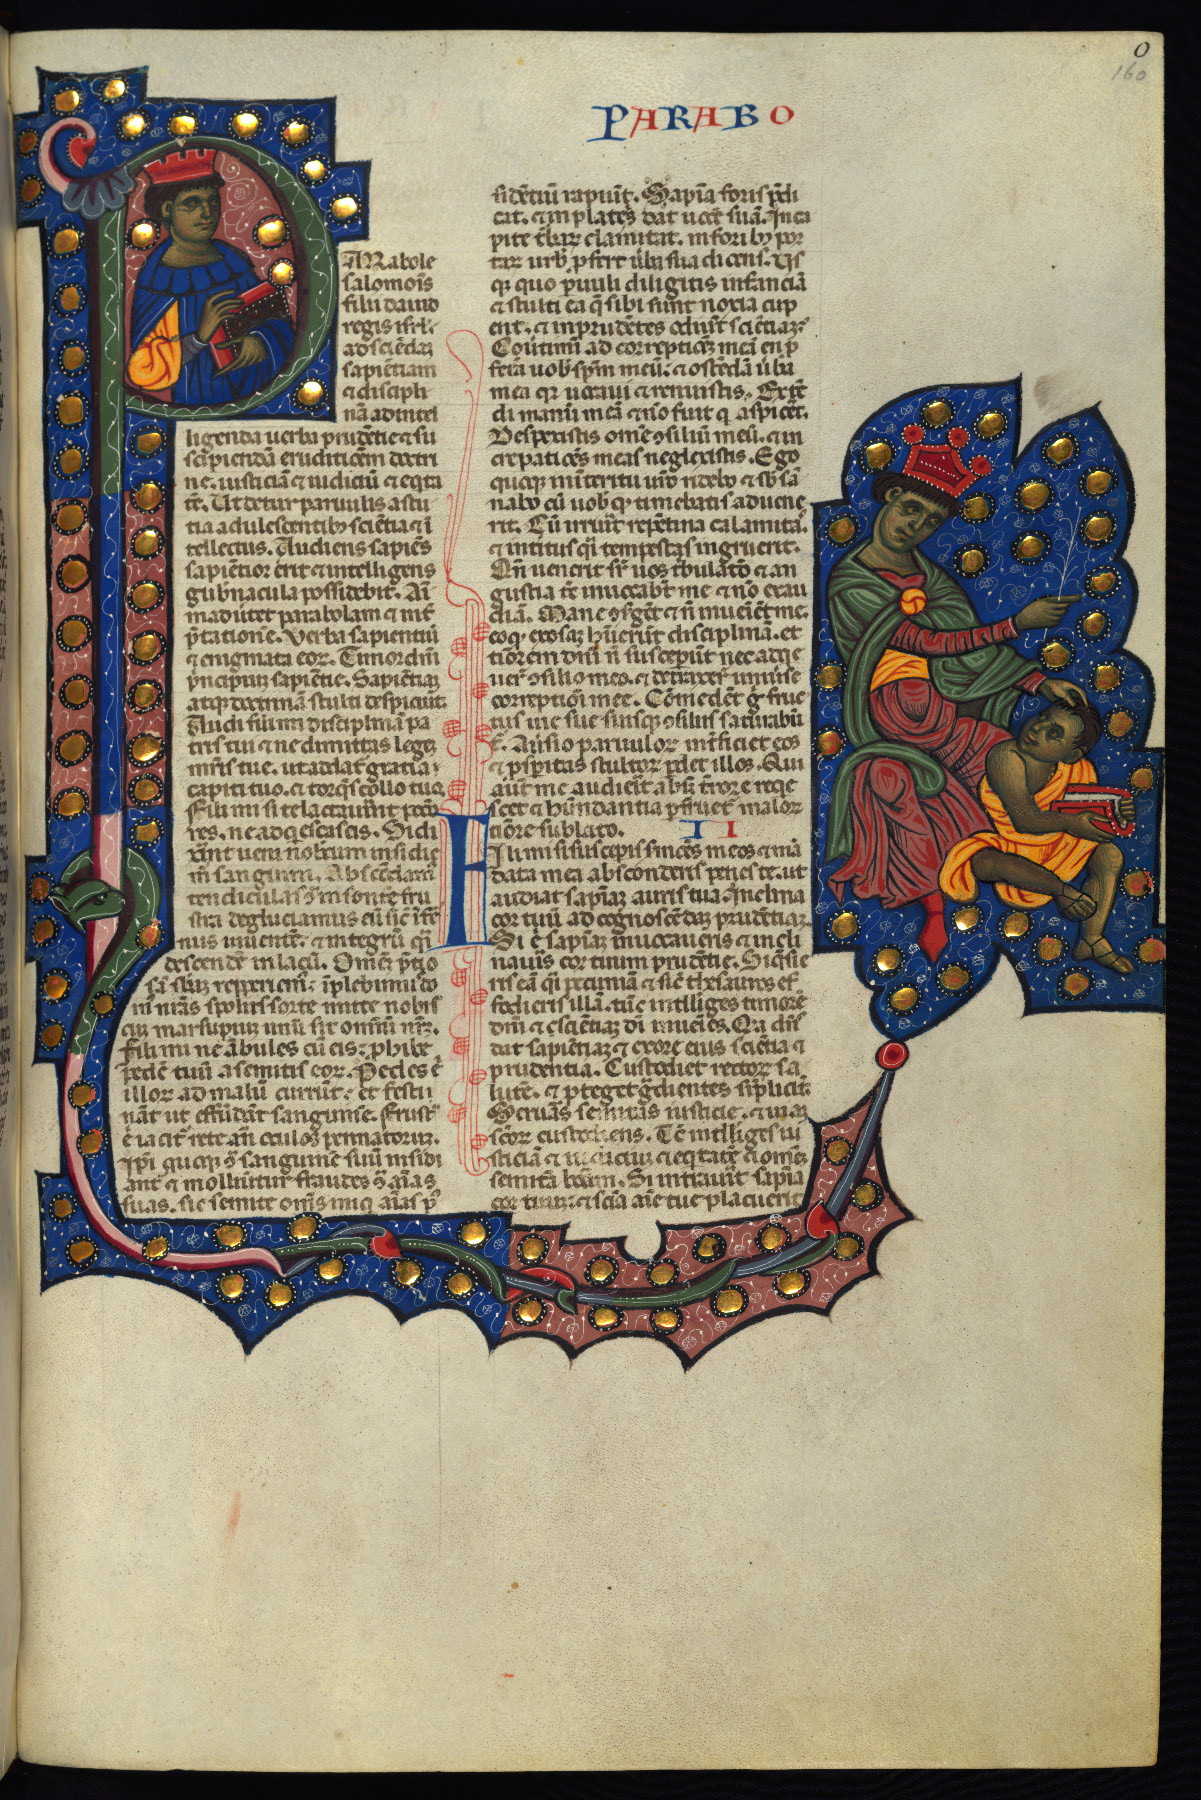 0
160
PARABO
ARabole
salomo͂is
filii dauid
regis isrl̛.
ad sciẽdaʒ
sapiẽtiam
⁊ discipli
nã ad intel
ligenda uerba prudẽtie ⁊ su
scipiendã eruditiõem doctri
ne. iusticiã ⁊ iudiciũ ⁊ eq̃ta
tẽ. Ut detur paruulis astu
tia adulescentibꝰ sciẽtia ⁊ ĩ
tellectus. Audiens sapiẽs
sapiẽtior erit ⁊ intelligens
gub̃nacula possidebit. Aĩ
maduertet parabolam ⁊ int̃
p̃tationẽ. Verba sapientiũ
⁊ enigmata eoꝝ. Timor dñi
p̃ncipiuʒ sapiẽtie. Sapiẽtiaʒ
atqꝫ doctrinã stulti despiciũt.
Audi fili mi disciplinã pa
tris tui ⁊ ne dimittas legeʒ
mr̃is tue. ut adda͂t gratia
capiti tuo. ⁊ torq̃s collo tuo.
Fili mi si te lactauerint pecca
res. ne adq̃escas eis. Si di
xerint ueni nobiscum insidie
m̃ sanguini. Absco͂dam
tendiculas ꝯ̃ insonte͂ fru
stra. deglutiamus eũ sic ĩfer
nus uiuente͂. ⁊ integrũ q̃i
descende͂ in lacũ. Om̃eʒ p̃tio
sã sb̃aʒ repperiem̃. ĩplebimꝰ do
m̃ nr̃as spoliis. sorte͂ mitte nobis
cũ. marsupiuʒ unũ sit omniũ nr̃ʒ.
Fili mi ne ãbules cũ eis. ꝓhibe
pede͂ tuũ a semitis eoꝝ. Pedes ẽ
illoꝝ ad malũ currũt. et festi
nãt ut effũdãt sanguine͂. Frustr̃
ẽ iacit̃ rete añ oculos pennatoruʒ.
Ip̃i quoqꝫ ꝯ̃ sanguine͂ suũ insidi
ant̃ ⁊ moliuntur fraudes ꝯ̃ aĩas
suas. sic semite om̃is auari aĩas p̃
sidẽtiũ rapiũt. Sapiã foris p̃di
cat. ⁊ in plateis dat uocẽ suã. In ca
pite t̃baꝝ clamitat. in foribꝰ por
taꝝ urbis ꝓfert uẽba sua dicens. Us
qꝫ quo p̃uuli diligitis infanciã
⁊ stulti ea q̃ sibi sũnt noxia cup
ent. ⁊ inprudẽtes odiũt sciẽtiaʒ.
Co͂u̇timĩ ad correptioneʒ meã en p̃
feram uob̃ sp̃m meũ. ⁊ oste͂dã ũba
mea. qꝛ uocaui ⁊ renuistis. Exte͂
di manũ meã ⁊ no͂ fuit q̃ aspicet.
Despexistis om̃e ꝯsiliũ meũ. ⁊ in
crepatioe͂s meas neglexistis. Ego
quoqꝫ in interitu ur̃o ridebo ⁊ sb̃sã
nabo cũ uob̃ qꝫ timebatis aduene
rit. Cũ irruit̃ repe͂tina calamita.
⁊ interitus q̃i tempestas ingruerit.
Qn̄ uenerit sr̃ uos tribulatio ⁊ an
gustia tc̃ inuocabũt me ⁊ no͂ exau
diã. Mane ꝯsgẽt ⁊ nõ inueniẽt me.
eoq̊ exosaʒ hũerũt disciplinã. et
timorem dñi nõ susceper̃t nec adqe
uer̃ ꝯsilio meo. ⁊ detraxer̃ uniuse
correptioni mee. Come͂det̃ g̃ fruc
tus uie sue suisqꝫ ꝯsiliis saturabũ
tur. Au̇sio paruuloꝝ int̃ficiet eos
⁊ p̃spitas stultoꝝ p̃det illos. Qui
aut̃ me audierit absqꝫ trore reqe
scet ⁊ hũndantia p̃fruet̃ maloꝝ
timore sublato.
II
F
Ili mi si susceꝑis sermones meos ⁊ mã
data mea absconderis penes te. ut
audiat sapiãm auris tua. Inclina
cor tuũ ad cognosce͂daʒ prude͂tiaʒ.
Si ẽ sapiãʒ inuocaueris ⁊ incli
nauis cor tuum prude͂tie. Si q̃sie
ris eã q̃i pecuniã ⁊ sic̃ thesauros ef
foderis illã. tũc intlliges timore͂
dñi ⁊ sciẽtiaʒ di inuenies. Qꝛ dñs
dat sapiẽtiaʒ ⁊ ex ore eius sciẽtia ⁊
prudentia. Custodiet rectoꝝ sa
lute͂. ⁊ ꝓteget g̃dientes sĩplicit̃.
Seruãs semitas iusticie. ⁊ uias
sc̃oꝝ custodiens. Tc̃ intlliges iu
sticiã ⁊ iudiciuʒ ⁊ eq̃tate͂ ⁊ omneʒ
semitã bo͂am. Si intrauit̃ sapiã
cor tuuʒ. ⁊ scĩa aĩe tue placuerit